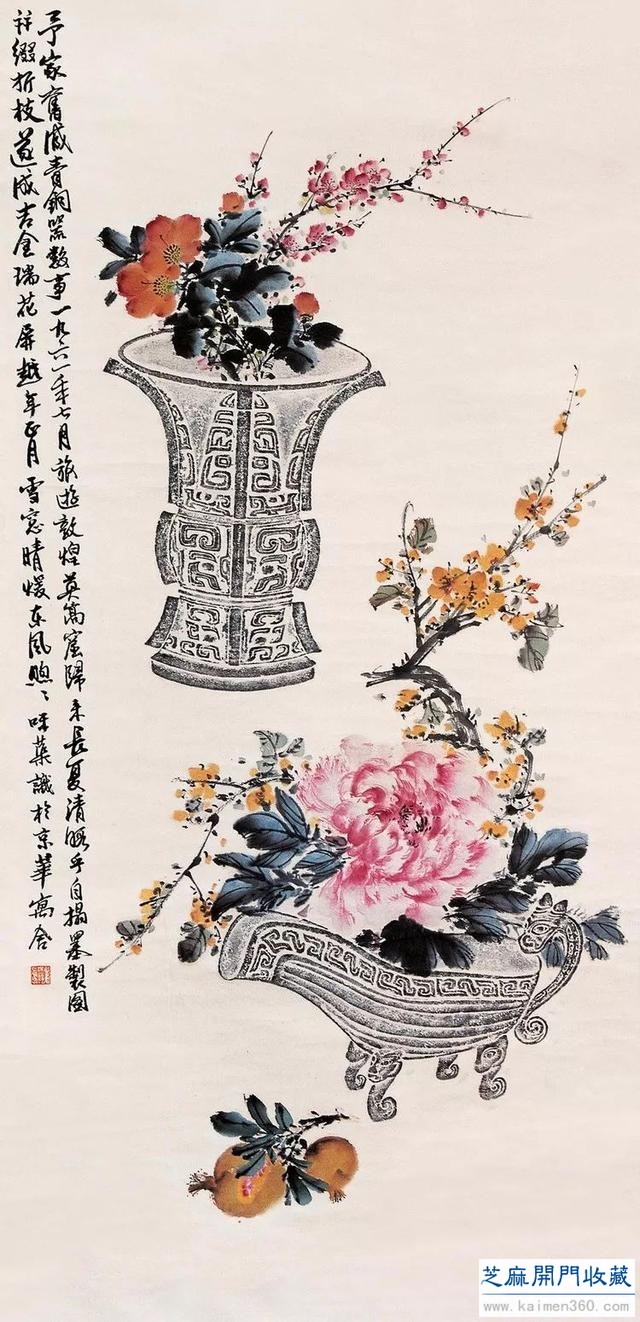 予家舊藏青銅器數事一九六一年七月旅遊敦煌莫高窟歸來長夏清暇手自搨墨製圖
并綴折枝遂成吉金瑞花屏越年正月雪窓晴煖东风煦〻味菜識於京華寓舍
芝麻開門收藏
www.kaimen360.com